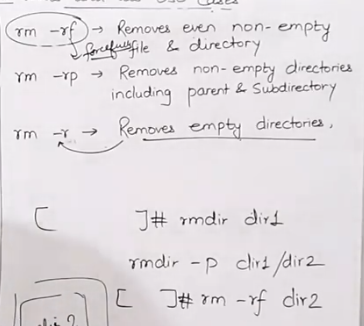 rm -rf → Removes even non-empty
forcefully file & directory
rm -rp → Removes non-empty directories
including parent & Subdirectory
rm -r → Removes empty directories.
[ ]# rmdir dir1
rmdir -p dir1/dir2
[ ]# rm -rf dir2